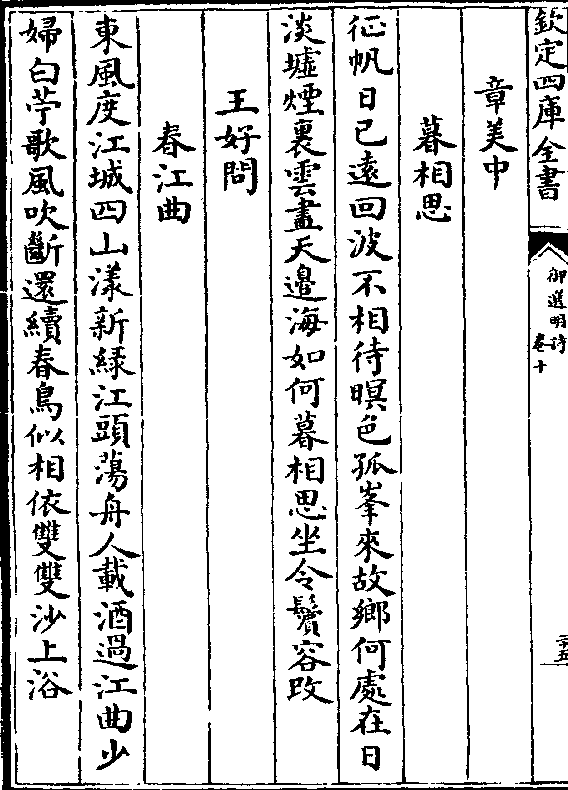 欽定四庫全書
御選明詩
卷十
二十五
章美中
暮相思
征帆日已遠回波不相待暝色孤峯來故鄉何處在日
淡墟煙裏雲盡天邉海如何暮相思坐令鬢容改
王好問
春江曲
東風度江城四山漾新緑江頭蕩舟人載酒過江曲少
婦白苧歌風吹斷還續春鳥似相依雙雙沙上浴